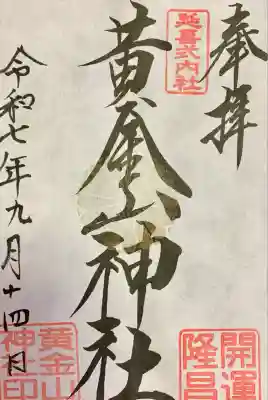 奉拝
延喜式内社
黄金山神社
開運隆昌
令和七年九月十四日
黄金山神社印